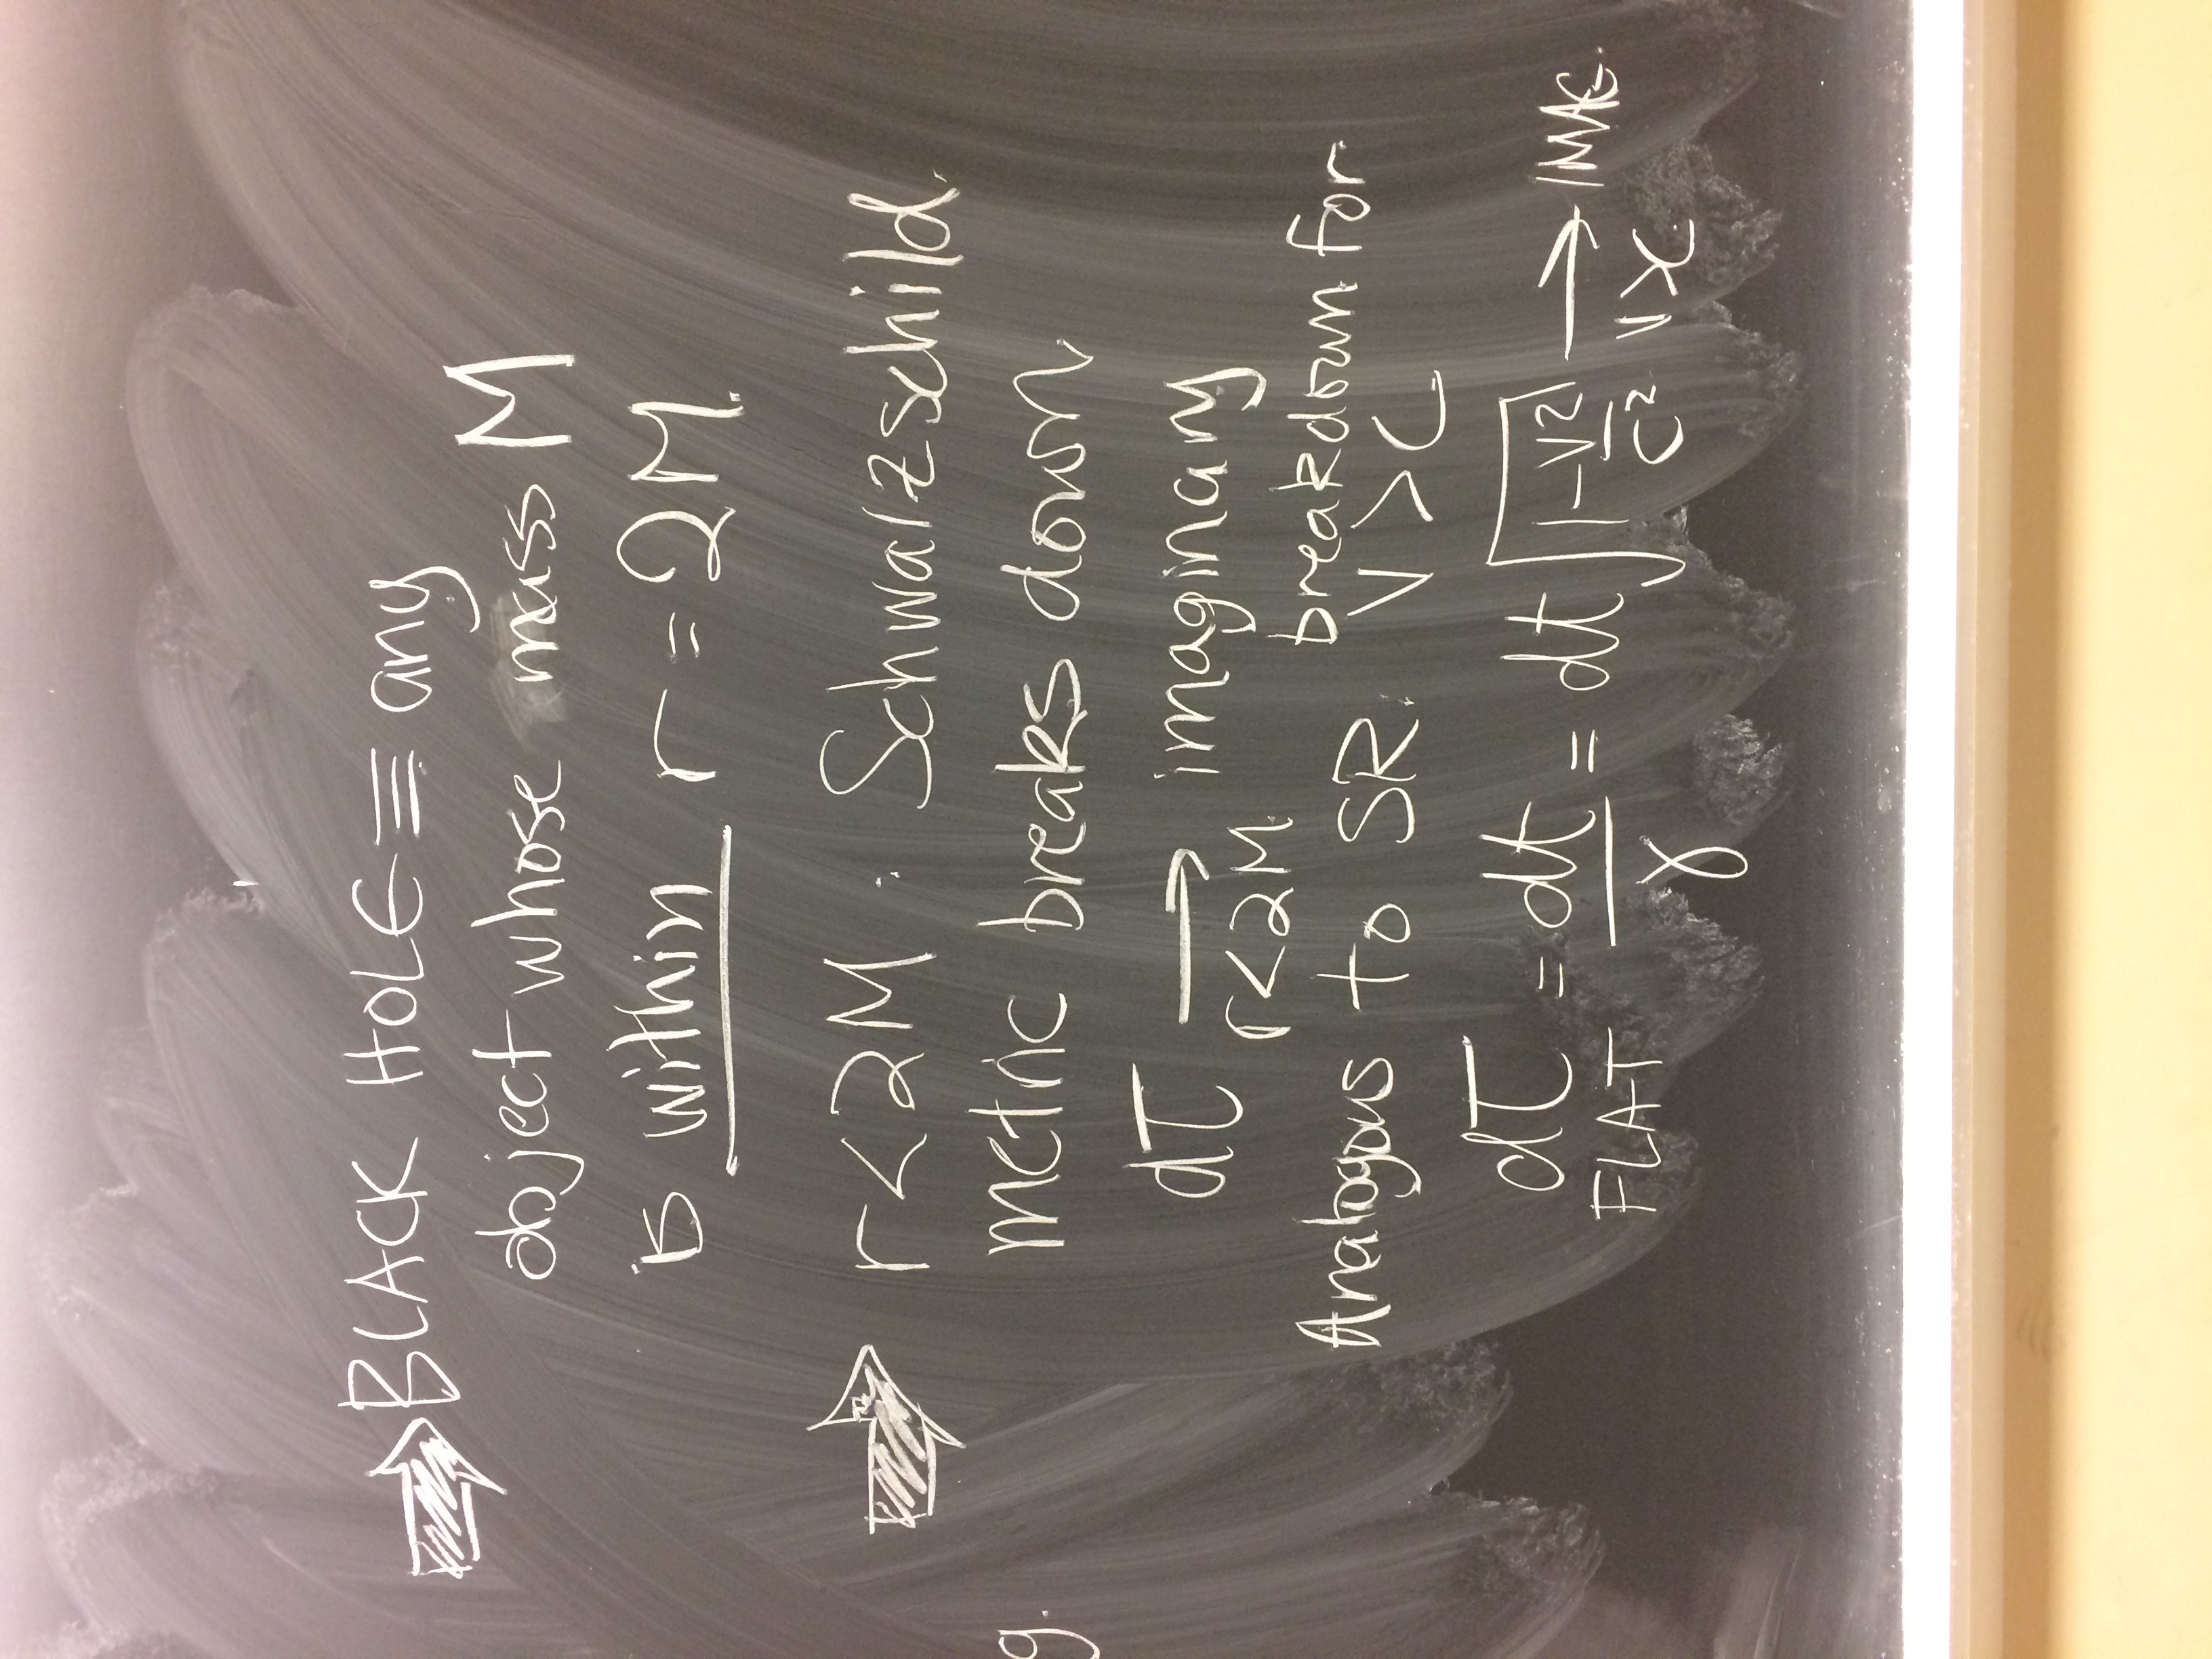 BLACK HOLE ≡ any
object whose mass M
is within r = 2M.
r<2M: Schwalzschild.
metric breaks down
dτ → imaginary
r<2M.
Analogous to SR: breakdown for
v > c
dτ = dt/γ = dt √(1-v²/c²) → IMAG.
FLAT v>c
g.